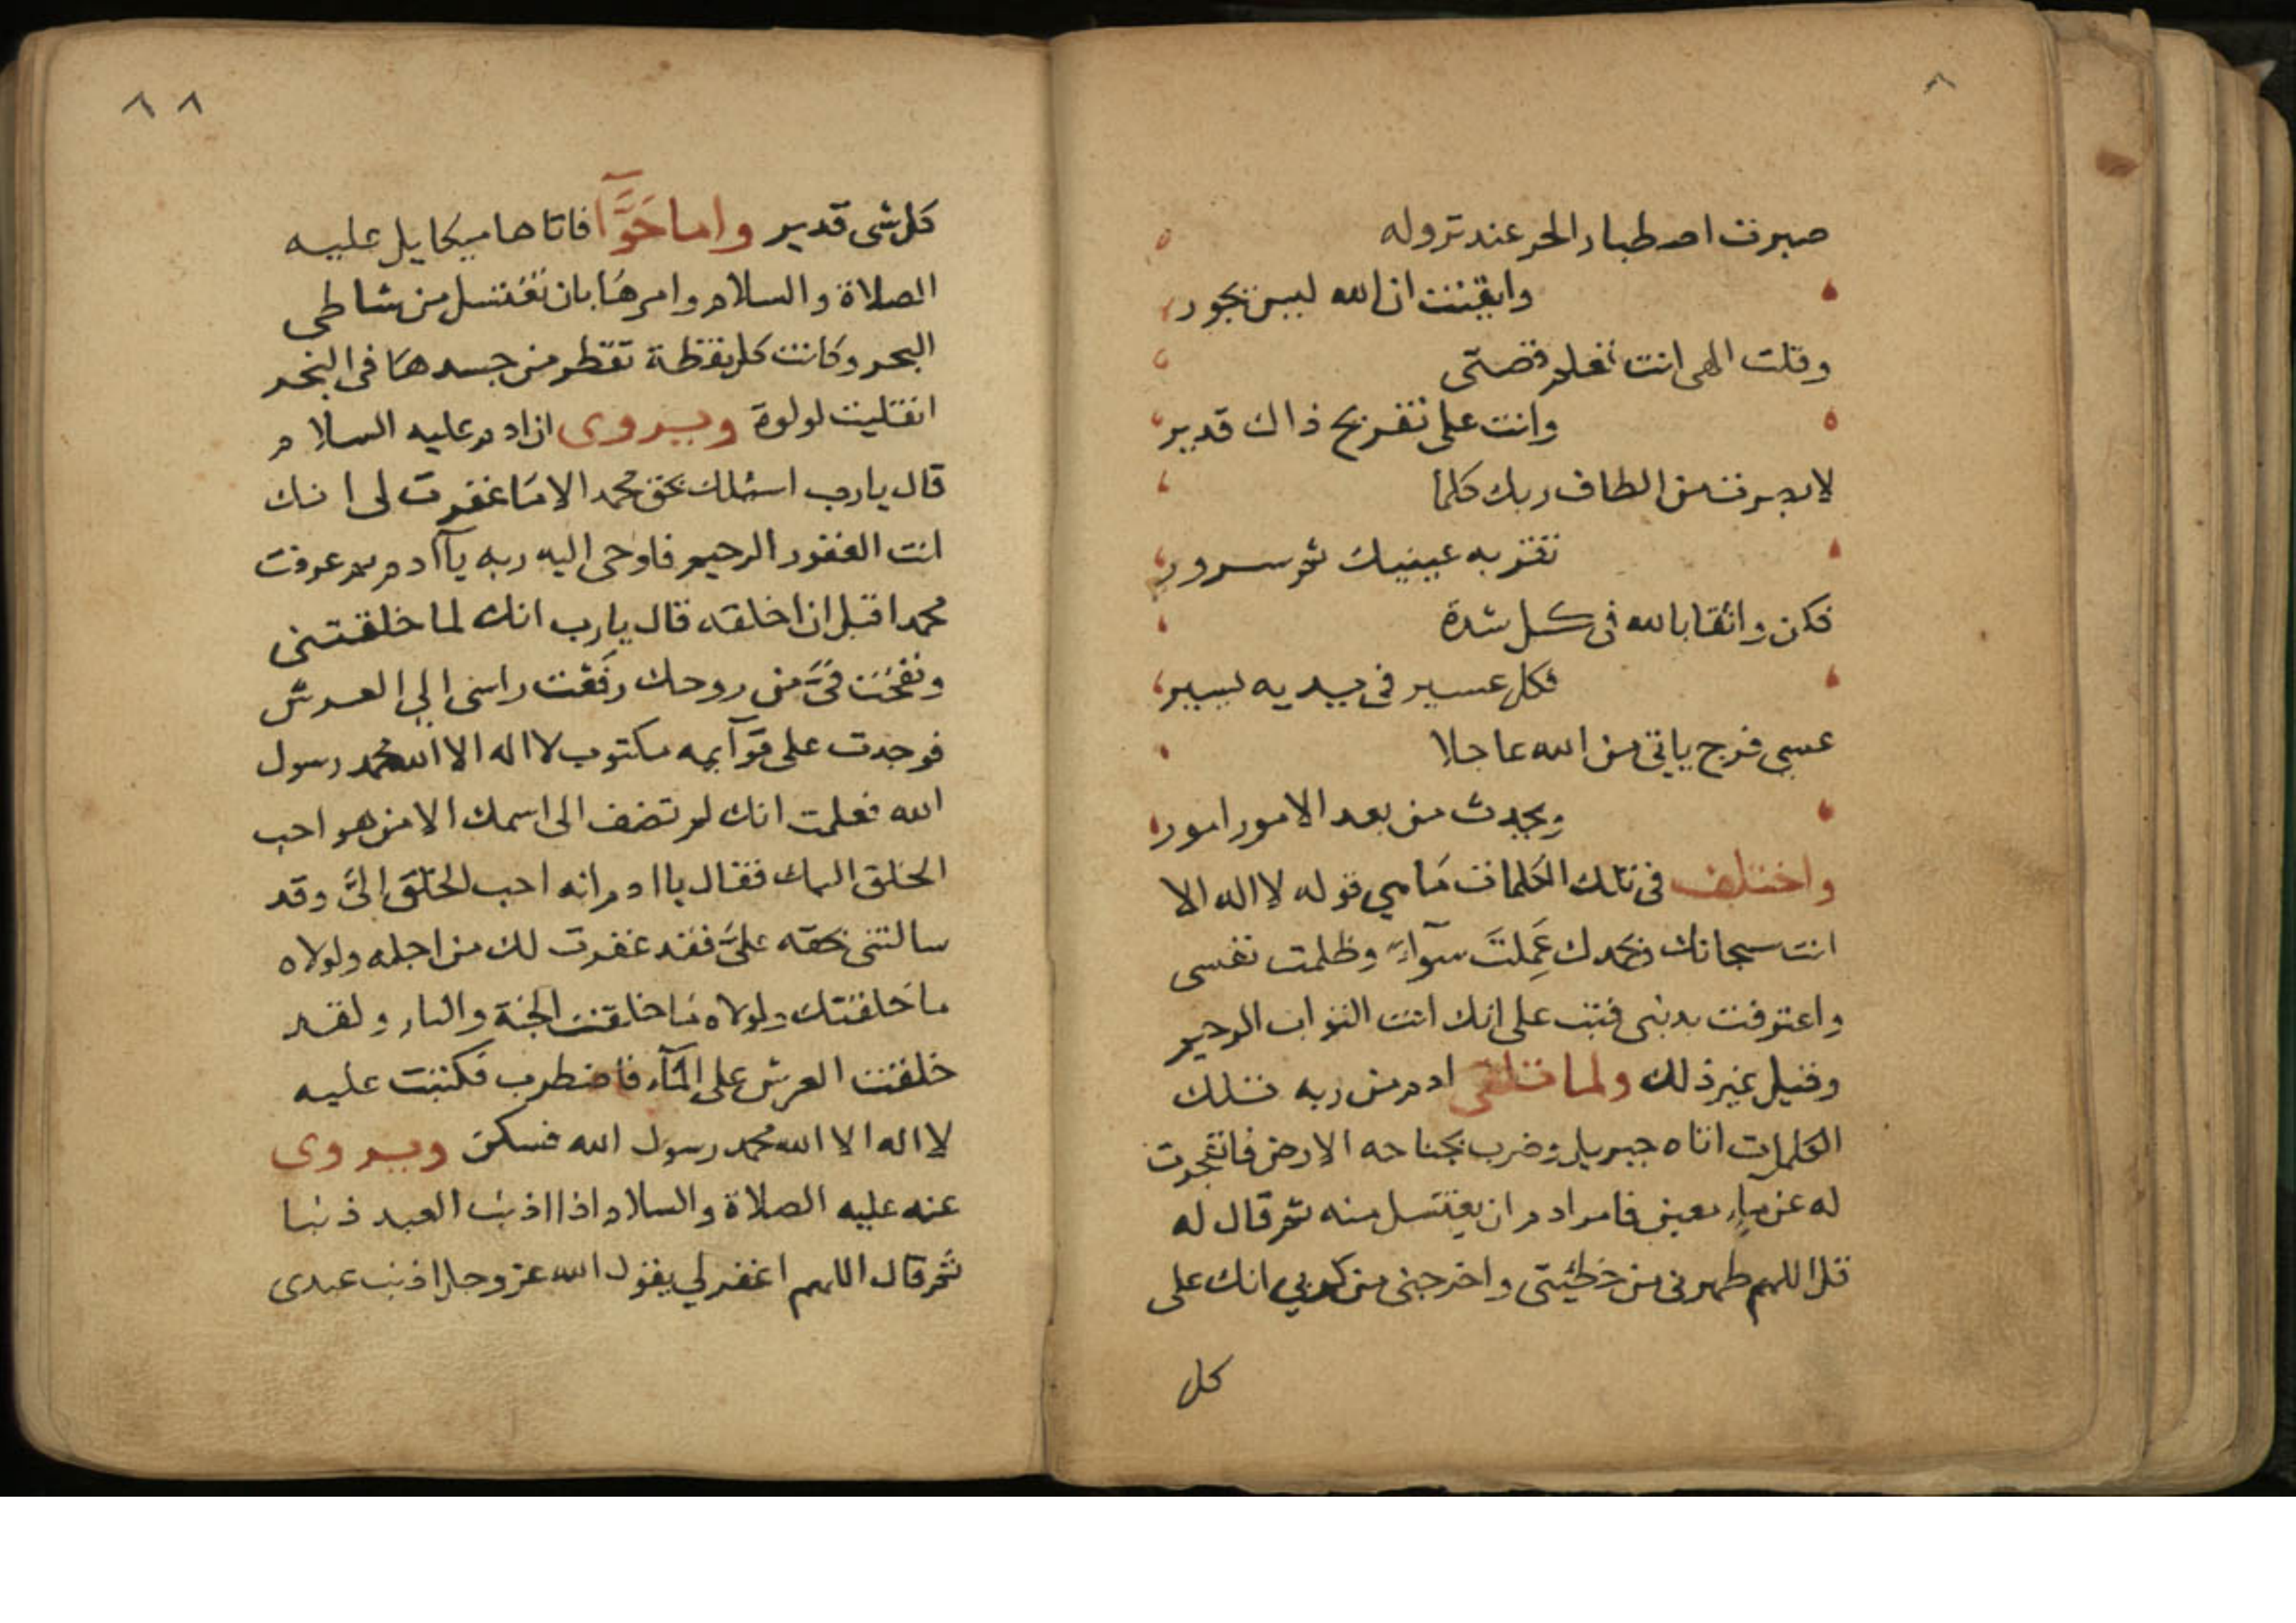 ٨
صبرت اصطبار الحر عند نزوله
وايقنت ان الله ليس يجور
وقلت الهى انت تعلم قصتى
وانت على تفريج ذاك قدير
لابصرت من الطاف ربك كلما
تقر به عينيك ثم سرور
فكن واثقا بالله فى كل شدة
فكل عسير فى يديه يسير
عسى فرج ياتى من الله عاجلا
ويحدث من بعد الامور امور
واختلف فى تلك الكلمات ما هي قوله لا اله الا
انت سبحانك وبحمدك عَمِلتَ سوآءً وظلمت نفسى
واعترفت بذنبى فتب على انك انت التواب الرحيم
وقيل غير ذلك ولما تلقى ادم من ربه تلك
الكلمات اتاه جبريل وضرب بجناحه الارض فانفجرت
له عن مآءٍ معين فامر ادم ان يغتسل منه ثم قال له
قل اللهم طهرنى من خطيئتى واخرجنى من كربي انك على
كل
٨ ٨
كل شى قدير واما حَوَّآ فاتاها ميكايل عليه
الصلاة والسلام وامرها بان تغتسل من شاطى
البحر وكانت كل نقطة تقطر من جسدها فى البحر
انقلبت لولوة ويروى ان ادم عليه السلام
قال يارب اسئلك بحق محمد الا ما غفرت لى انك
انت الغفور الرحيم فاوحى اليه ربه يآادم بم عرفت
محمدا قبل ان اخلقه قال يارب انك لما خلقتنى
ونفخت فىَّ من روحك رفعت راسى الي العرش
فوجدت على قوآيمه مكتوب لا اله الا الله محمد رسول
الله فعلمت انك لم تضف الى اسمك الا من هو احب
الخلق اليك فقال ياادم انه احب الخلق الىَّ وقد
سالتنى بحقه علىَّ فقد غفرت لك من اجله ولولاه
ما خلقتك ولولاه ما خلقت الجنة والنار ولقد
خلقت العرش على المآء فاضطرب فكتبت عليه
لا اله الا الله محمد رسول الله فسكن ويروى
عنه عليه الصلاة والسلام اذا اذنب العبد ذنبا
ثم قال اللهم اغفر لي يقول الله عز وجل اذنب عبدى